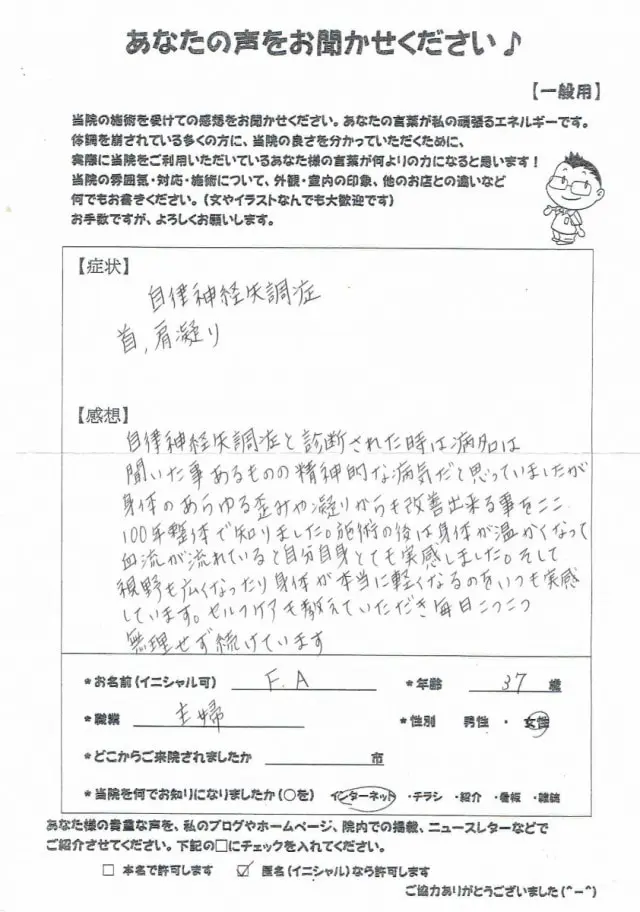 あなたの声をお聞かせください♪
【一般用】
当院の施術を受けての感想をお聞かせください。あなたの言葉が私の頑張るエネルギーです。
体調を崩されている多くの方に、当院の良さを分かっていただくために、
実際に当院をご利用いただいているあなた様の言葉が何よりの力になると思います!
当院の雰囲気・対応・施術について、外観・室内の印象、他のお店との違いなど
何でもお書きください。(文やイラストなんでも大歓迎です)
お手数ですが、よろしくお願いします。
【症状】
自律神経失調症
首,肩凝り
【感想】
自律神経失調症と診断された時は病名は
聞いた事あるものの精神的な病気だと思っていましたが
身体のあらゆる歪みや凝りからも改善出来る事をここ
100年整体で知りました。施術の後は身体が温かくなって
血流が流れていると自分自身とても実感しました。そして
視野も広くなったり身体が本当に軽くなるのをいつも実感
しています。セルフケアも教えていただき毎日こつこつ
無理せず続けています
*お名前(イニシャル可) F.A *年齢 37 歳
*職業 主婦 *性別 男性 ・ 女性
*どこからご来院されましたか 市
*当院を何でお知りになりましたか(○を) インターネット ・チラシ ・紹介 ・看板 ・雑誌
あなた様の貴重な声を、私のブログやホームページ、院内での掲載、ニュースレターなどで
ご紹介させてください。下記の□にチェックを入れてください。
□ 本名で許可します ☑ 匿名(イニシャル)なら許可します
ご協力ありがとうございました(^-^)